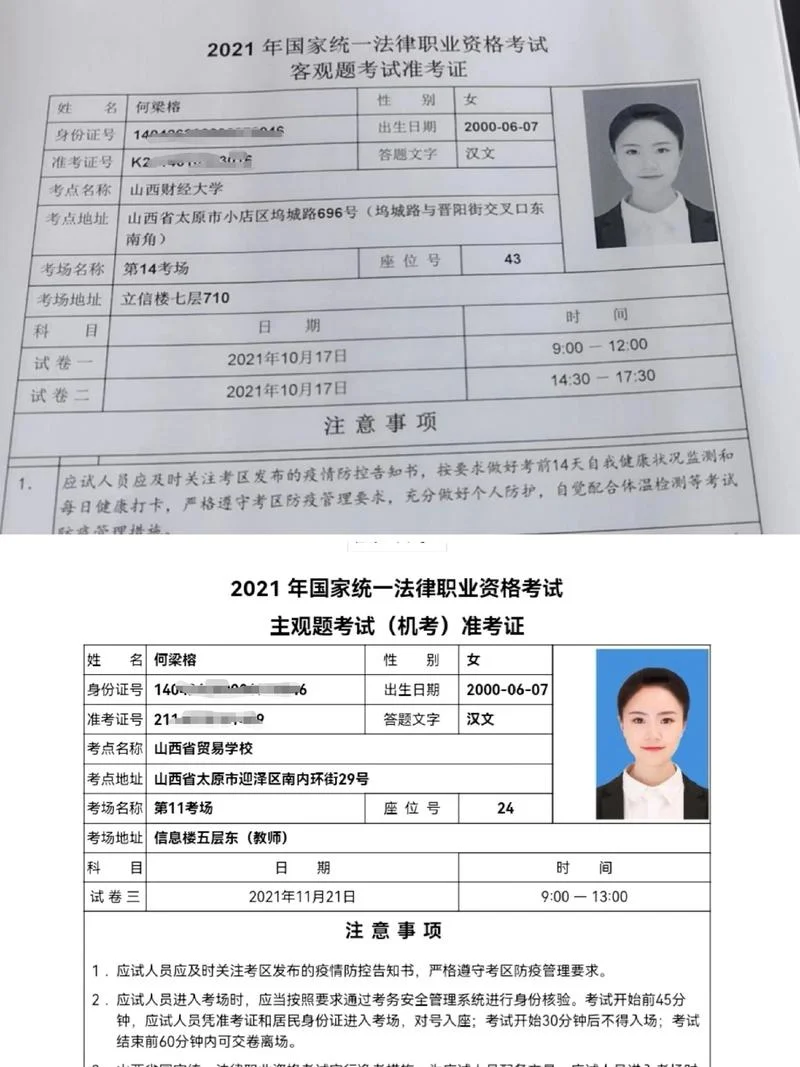 2021 年国家统一法律职业资格考试
客观题考试准考证
姓 名 何梁榕 性 别 女
身份证号 出生日期 2000-06-07
准考证号 答题文字 汉文
考点名称 山西财经大学
考点地址 山西省太原市小店区坞城路696号（坞城路与晋阳街交叉口东
南角）
考场名称 第14考场 座 位 号 43
考场地址 立信楼七层710
科 目 日 期 时 间
试 卷 一 2021年10月17日 9:00 — 12:00
试 卷 二 2021年10月17日 14:30 — 17:30
注 意 事 项
1. 应试人员应及时关注考区发布的疫情防控告知书，按要求做好考前14天自我健康状况监测和
每日健康打卡，严格遵守考区防疫管理要求，充分做好个人防护，自觉配合体温检测等考试
防疫管理措施。
2021 年国家统一法律职业资格考试
主观题考试（机考）准考证
姓 名 何梁榕 性 别 女
身份证号 出生日期 2000-06-07
准考证号 答题文字 汉文
考点名称 山西省贸易学校
考点地址 山西省太原市迎泽区南内环街29号
考场名称 第11考场 座 位 号 24
考场地址 信息楼五层东（教师）
科 目 日 期 时 间
试 卷 三 2021年11月21日 9:00 — 13:00
注 意 事 项
1．应试人员应及时关注考区发布的疫情防控告知书，严格遵守考区防疫管理要求。
2．应试人员进入考场时，应当按照要求通过考务安全管理系统进行身份核验。考试开始前45分
钟，应试人员凭准考证和居民身份证进入考场，对号入座；考试开始30分钟后不得入场；考试
结束前60分钟内可交卷离场。